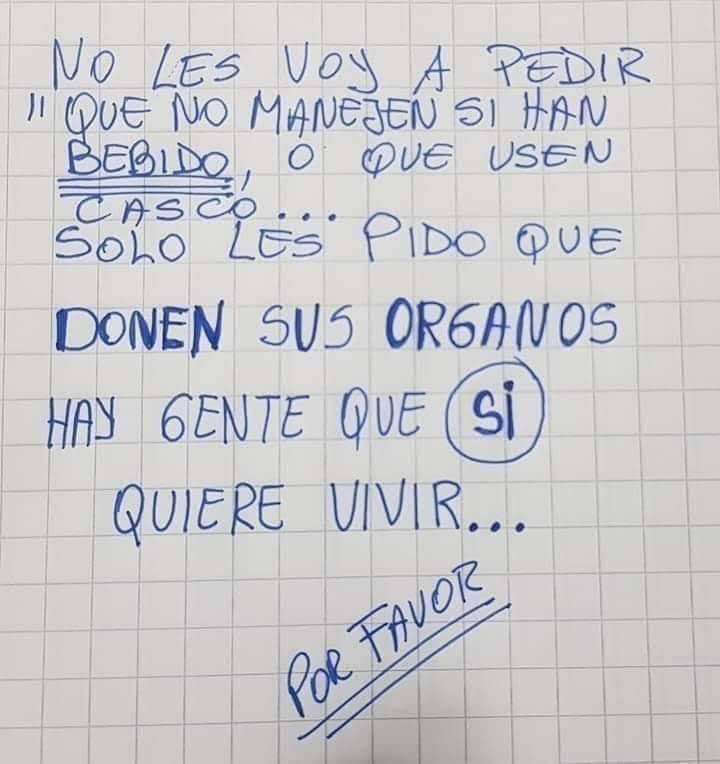 NO LES VOY A PEDIR
" QUE NO MANEJEN SI HAN
BEBIDO, O QUE USEN
CASCO...
SOLO LES PIDO QUE
DONEN SUS ORGANOS
HAY GENTE QUE SI
QUIERE VIVIR...
POR FAVOR